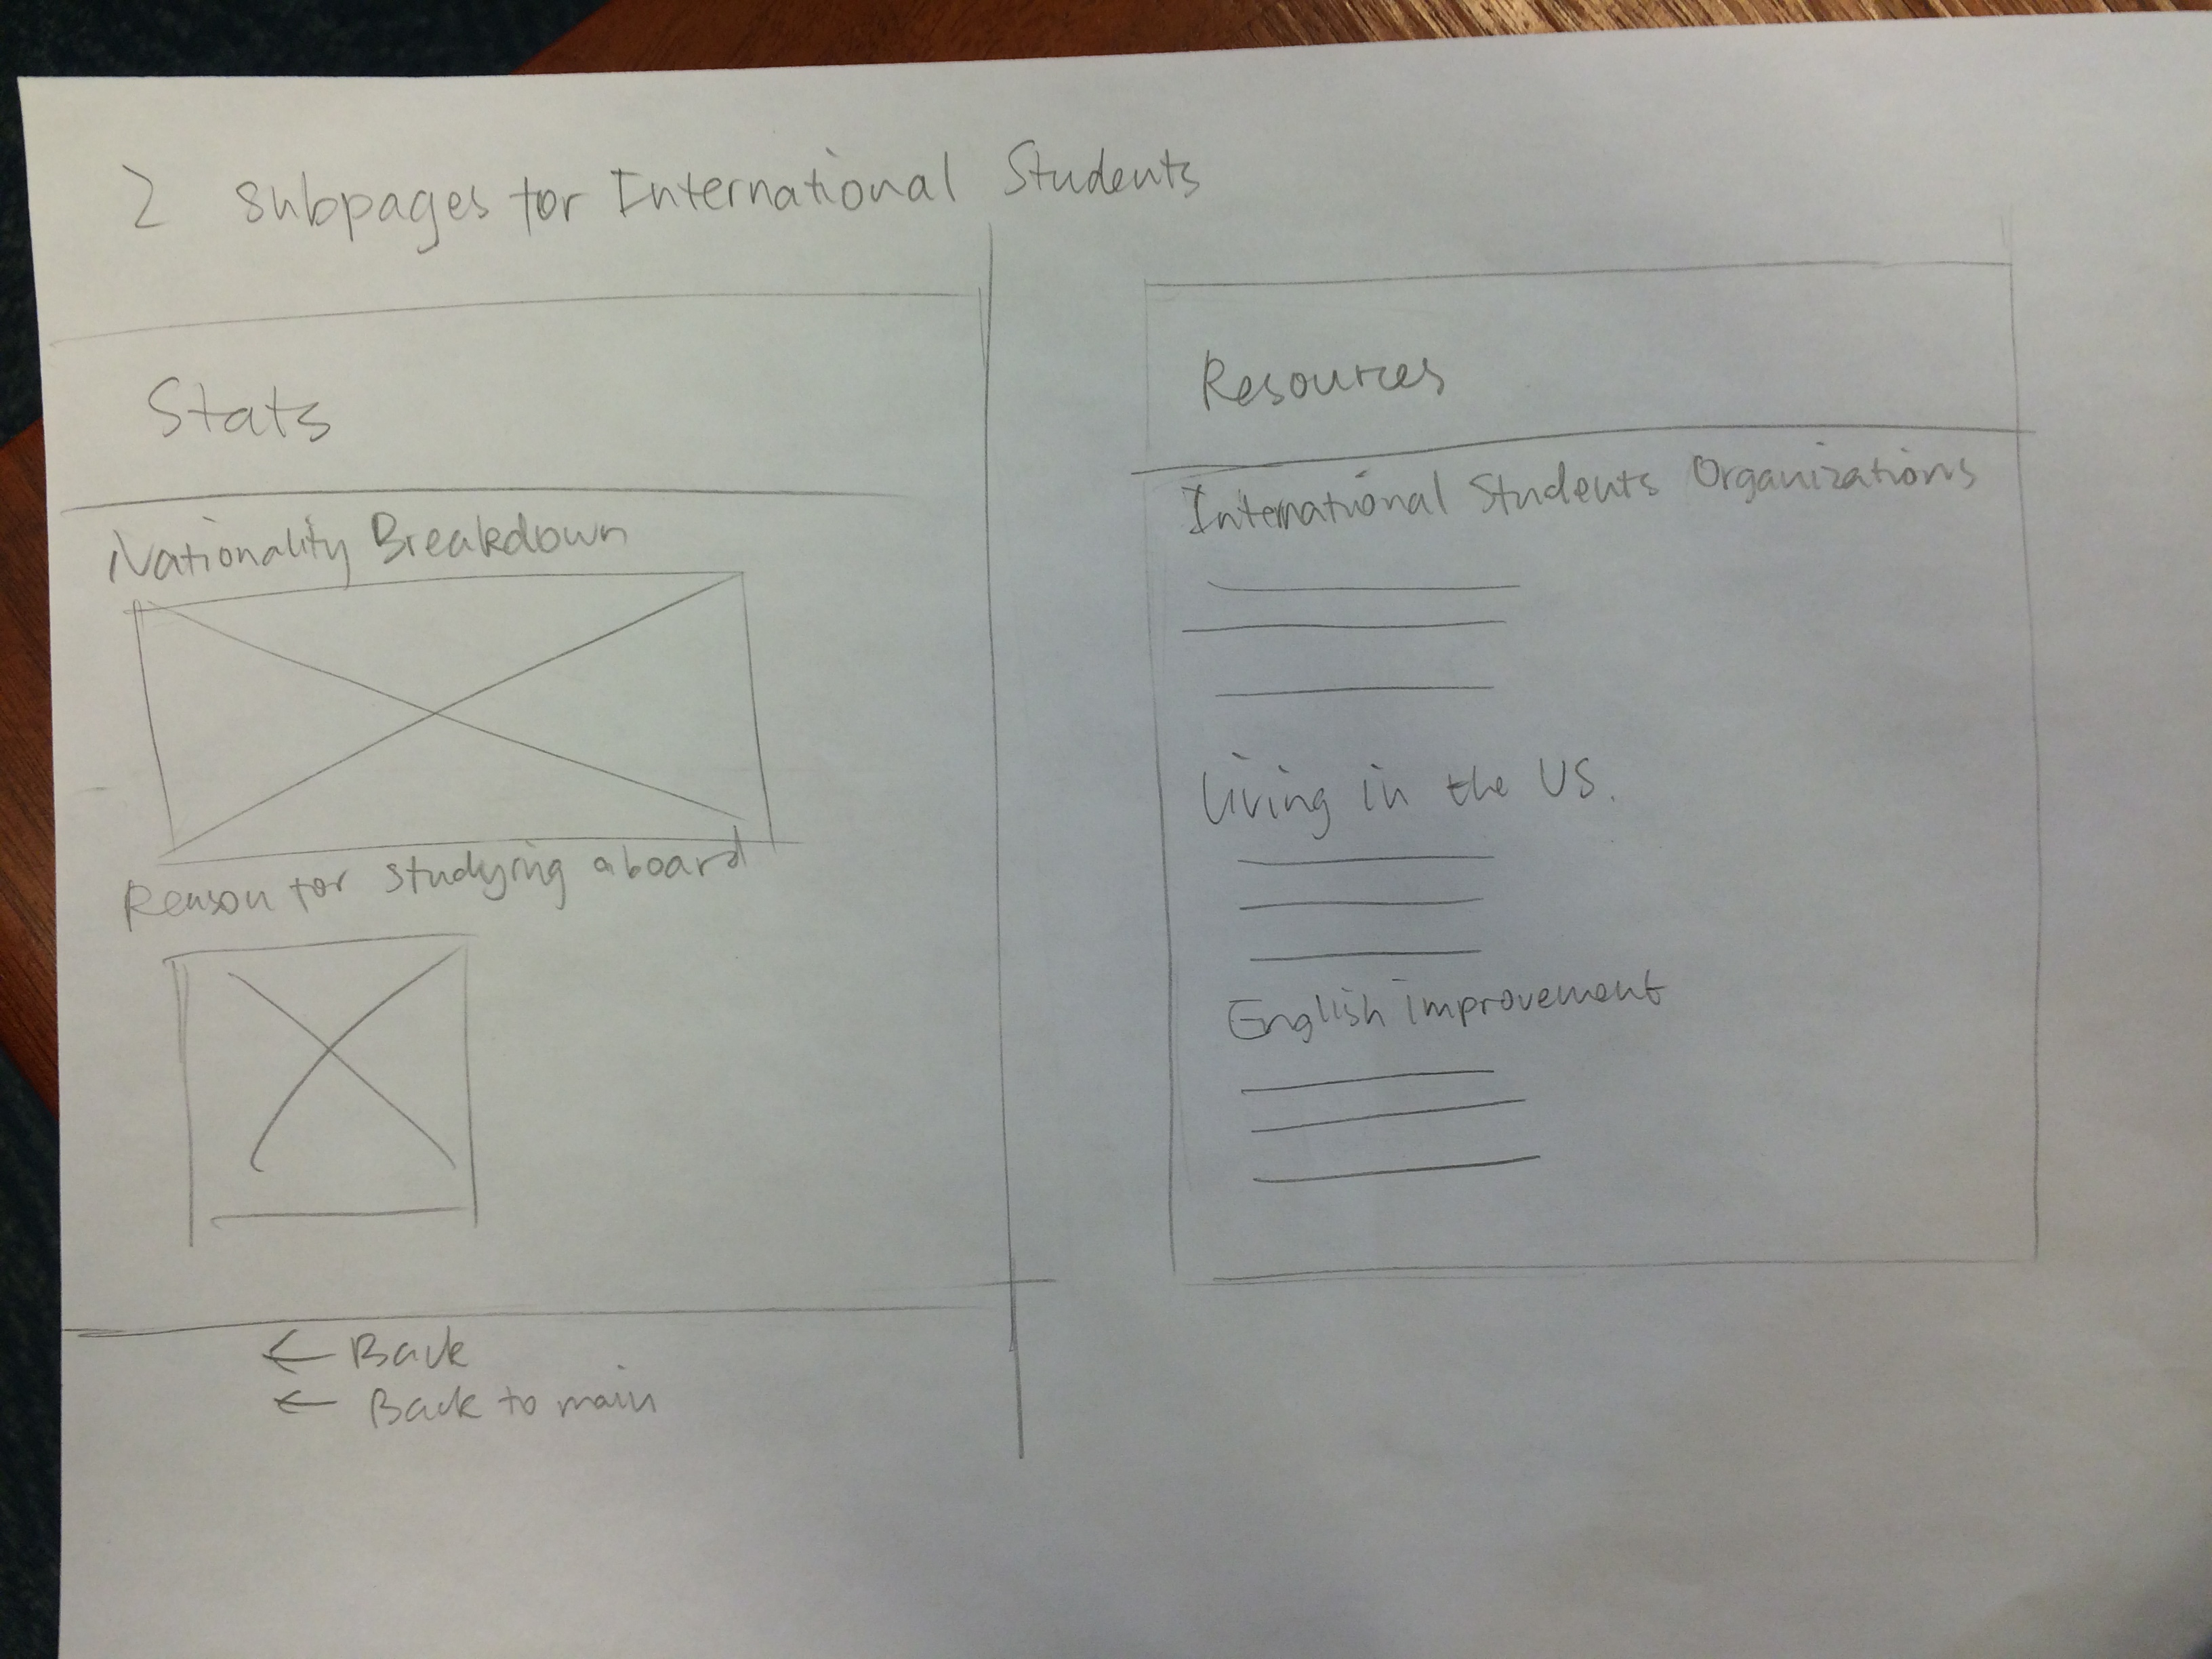 2 subpages for International Students
Stats
Nationality Breakdown
Reason for studying aboard
← Back
← Back to main
Resources
International Students Organizations
Living in the US.
English improvement